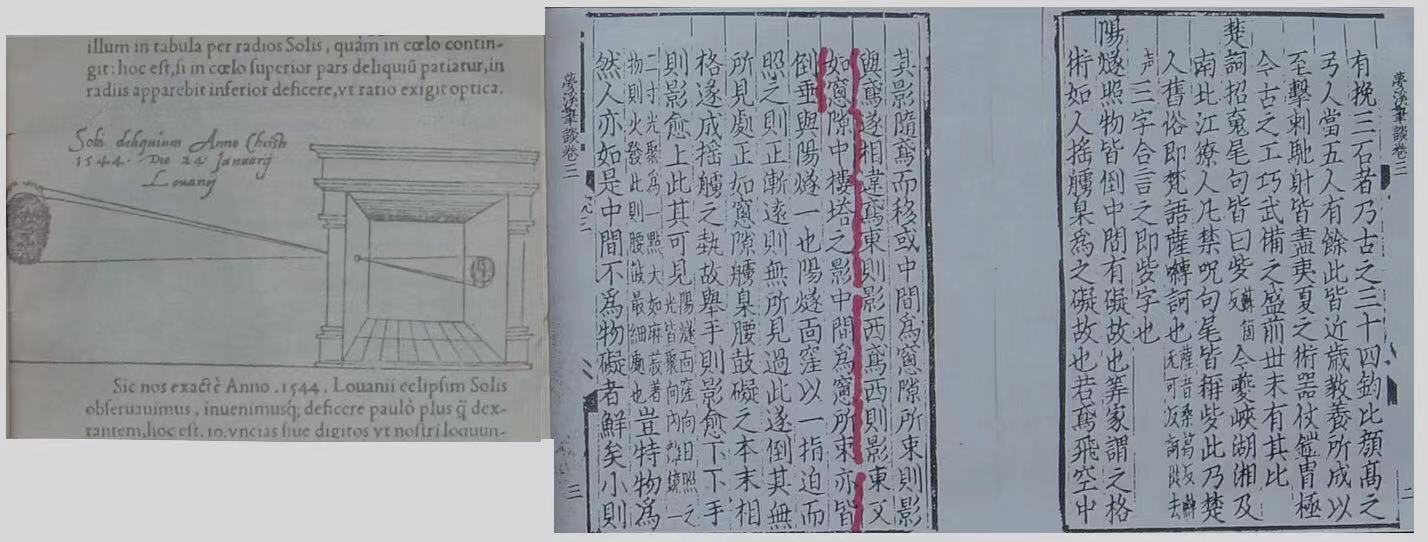 illum in tabula per radios Solis, quàm in cœlo contin-
git: hoc eſt, ſi in cœlo ſuperior pars deliquiū patiatur, in
radiis apparebit inferior deficere, vt ratio exigit optica.
Solis deliquium Anno Christi
1544. Die 24 Januarij
Louanij
Sic nos exactè Anno .1544. Louanii eclipſim Solis
obſeruauimus, inuenimusq́; deficere paulò plus q̃ dex-
tantem, hoc eſt, 10. vncias ſiue digitos vt noſtri loquun-
有挽三石者乃古之三十四鈞比顏高之
弓人當五人有餘此皆近歲教養所成以
至擊刺馳射皆盡夷夏之術器仗鎧冑極
今古之工巧武備之盛前世未有其比
楚詞招䰟尾句皆曰些蘇箇反今夔峽湖湘及
南北江獠人凡禁呪句尾皆稱些此乃楚
人舊俗即梵語薩嚩訶也薩音桑葛反嚩無可反訶從去
声三字合言之即些字也
陽燧照物皆倒中間有礙故也筭家謂之格
術如人搖艣臬爲之礙故也若鳶飛空中
夢溪筆談卷三
二
其影隨鳶而移或中間爲窻隙所束則影
與鳶遂相違鳶東則影西鳶西則影東又
如窻隙中樓塔之影中間爲窻所束亦皆
倒垂與陽燧一也陽燧面窪以一指迫而
照之則正漸遠則無所見過此遂倒其無
所見處正如窻隙艣臬腰鼓礙之本末相
格遂成搖艣之勢故舉手則影愈下下手
則影愈上此其可見陽燧面窪向日照之光皆聚向內離鏡一
二寸光聚爲一點大如麻菽著物則火發此則腰鼓最細處也豈特物爲
然人亦如是中間不爲物礙者鮮矣小則
夢溪筆談卷三
三